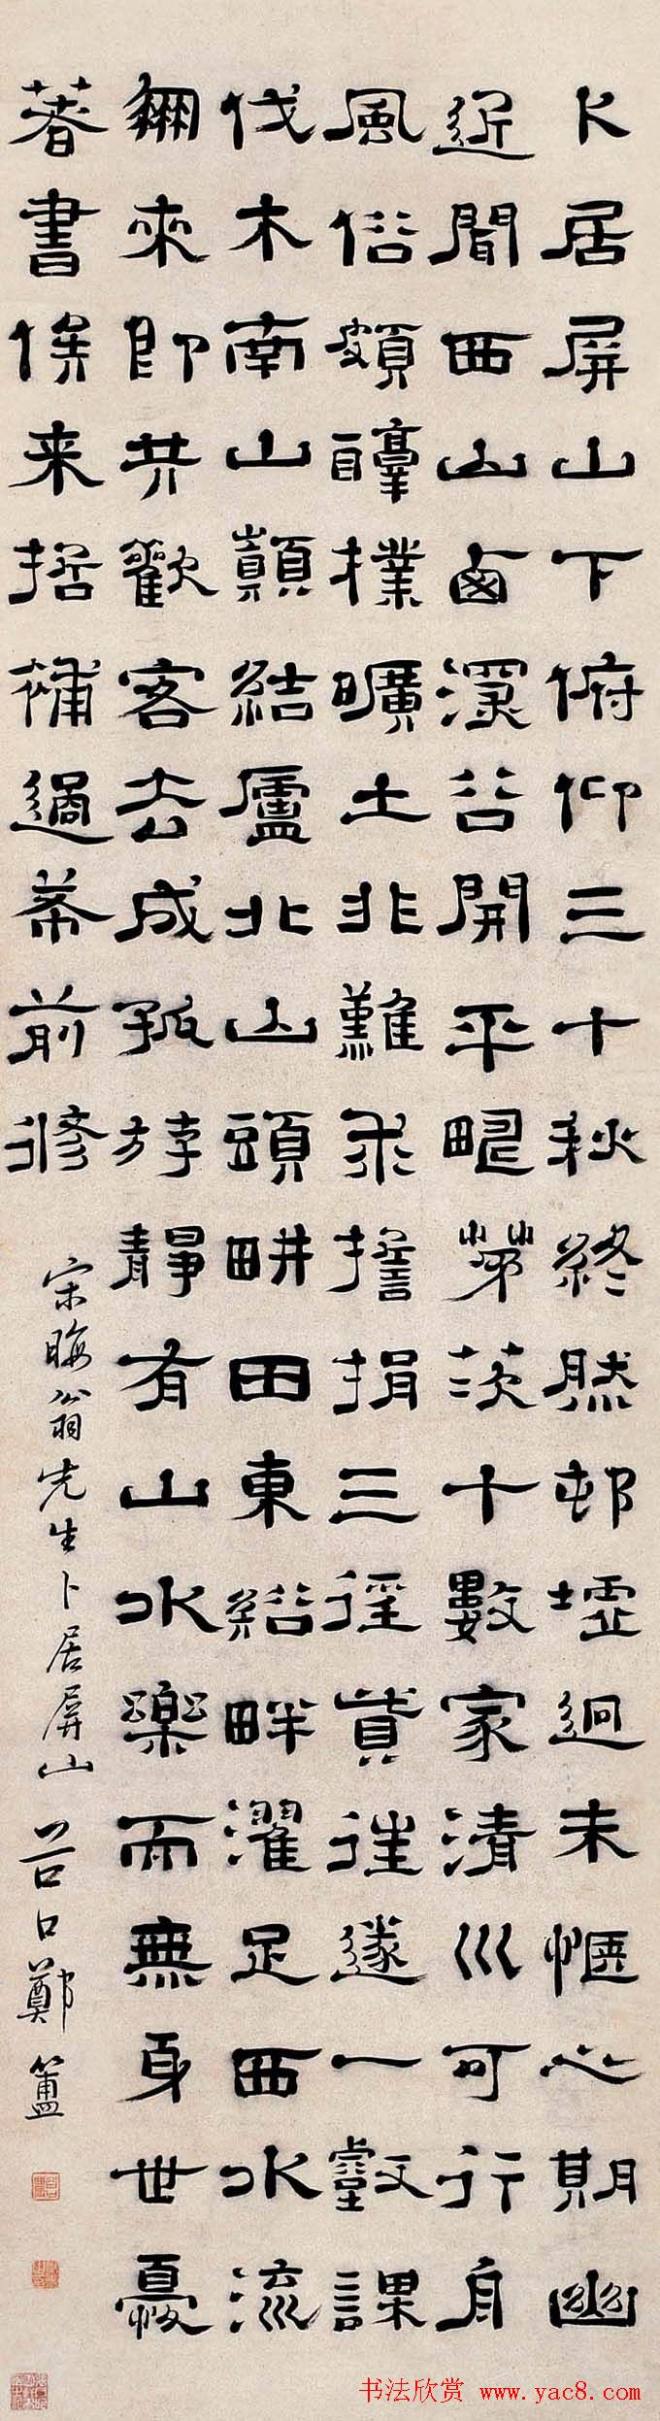 卜居屏山下俯仰三十秋終然邨墟迥未愜心期幽
近聞西山卤深谷開平疇茅茨十數家清巛可行舟
風俗頗醇樸曠土非難求擔捐三徑貲往遂一壑課
伐木南山巔結廬北山頭畊田東谿畔濯足西水流
來即共歡客去成孤游靜有山水樂而無身世憂
著書俟来哲補過希前修
宋晦翁先生卜居屏山 谷口鄭簠
书法欣赏 www.yac8.com